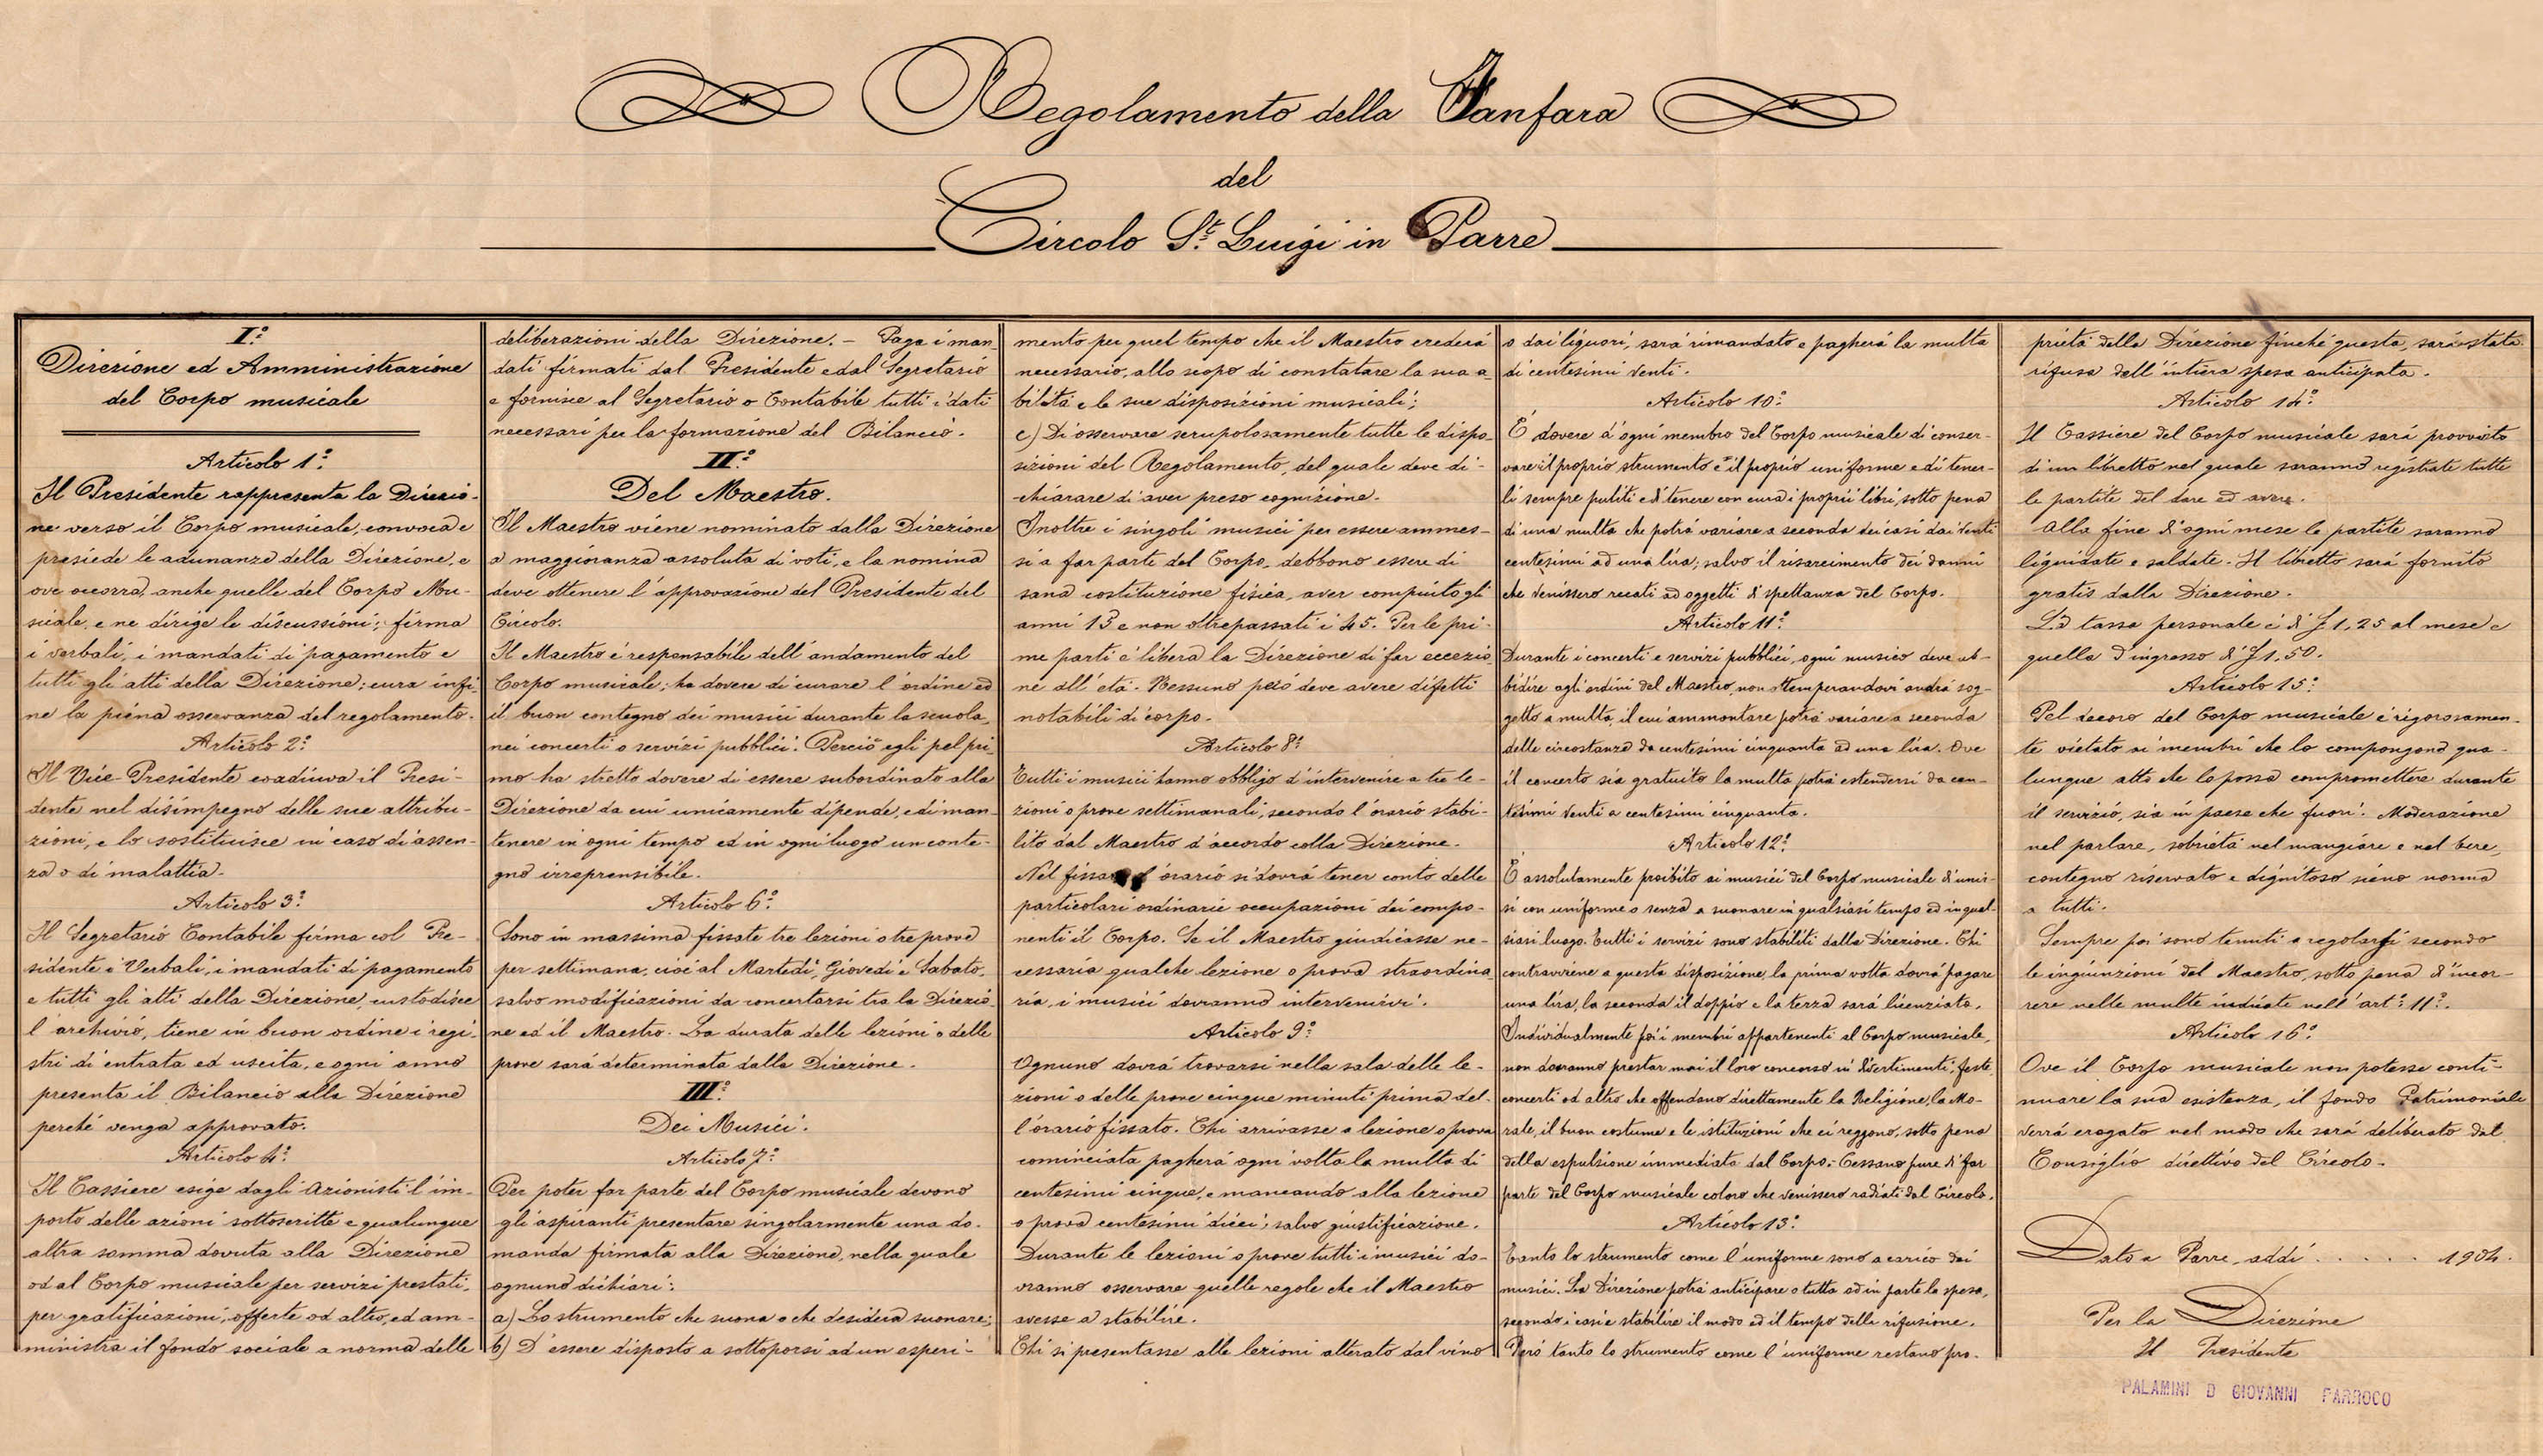 Regolamento della Fanfara
del
Circolo St. Luigi in Parre
I.°
Direzione ed Amministrazione
del Corpo musicale
Articolo 1.°
Il Presidente rappresenta la Direzio-
ne verso il Corpo musicale, convoca e
presiede le adunanze della Direzione, e
ove occorra, anche quelle del Corpo Mu-
sicale, e ne dirige le discussioni; firma
i verbali, i mandati di pagamento e
tutti gli atti della Direzione; cura infi-
ne la piena osservanza del regolamento.
Articolo 2.°
Il Vice-Presidente coadiuva il Presi-
dente nel disimpegno delle sue attribu-
zioni, e lo sostituisce in caso di assen-
za o di malattia.
Articolo 3.°
Il Segretario Contabile firma col Pre-
sidente i Verbali, i mandati di pagamento
e tutti gli atti della Direzione, custodisce
l'archivio, tiene in buon ordine i regi-
stri di entrata ed uscita, e ogni anno
presenta il Bilancio alla Direzione
perché venga approvato.
Articolo 4.°
Il Cassiere esige dagli Azionisti l'im-
porto delle azioni sottoscritte e qualunque
altra somma dovuta alla Direzione
od al Corpo musicale per servizi prestati,
per gratificazioni, offerte od altro, ed am-
ministra il fondo sociale a norma delle
deliberazioni della Direzione. - Paga i man-
dati firmati dal Presidente e dal Segretario
e fornisce al Segretario o Contabile tutti i dati
necessari per la formazione del Bilancio.
II.°
Del Maestro.
Il Maestro viene nominato dalla Direzione
a maggioranza assoluta di voti, e la nomina
deve ottenere l'approvazione del Presidente del
Circolo.
Il Maestro é responsabile dell'andamento del
Corpo musicale; ha dovere di curare l'ordine ed
il buon contegno dei musici durante la scuola,
nei concerti o servizi pubblici. Perció egli pel pri-
mo ha stretto dovere di essere subordinato alla
Direzione da cui unicamente dipende, e di man-
tenere in ogni tempo ed in ogni luogo un conte-
gno irreprensibile.
Articolo 6.°
Sono in massima fissate tre lezioni o tre prove
per settimana, cioé al Martedí, Giovedí e Sabato,
salvo modificazioni da concertarsi tra la Direzio-
ne ed il Maestro. La durata delle lezioni o delle
prove sará determinata dalla Direzione.
III.°
Dei Musici.
Articolo 7.°
Per poter far parte del Corpo musicale devono
gli aspiranti presentare singolarmente una do-
manda firmata alla Direzione, nella quale
ognuno dichiari:
a) Lo strumento che suona o che desidera suonare;
b) D'essere disposto a sottoporsi ad un esperi-
mento per quel tempo che il Maestro crederá
necessario, allo scopo di constatare la sua a-
bilitá e le sue disposizioni musicali;
c) Di osservare scrupolosamente tutte le dispo-
sizioni del Regolamento, del quale deve di-
chiarare di aver preso cognizione.
Inoltre i singoli musici per essere ammes-
si a far parte del Corpo, debbono essere di
sana costituzione fisica, aver compiuto gli
anni 13 e non oltrepassati i 45. Per le pri-
me parti é libera la Direzione di far eccezio-
ne all'etá. Nessuno peró deve avere difetti
notabili di corpo.
Articolo 8.°
Tutti i musici hanno obbligo d'intervenire a tre le-
zioni o prove settimanali, secondo l'orario stabi-
lito dal Maestro d'accordo colla Direzione.
Nel fissare l'orario si dovrá tener conto delle
particolari ordinarie occupazioni dei compo-
nenti il Corpo. Se il Maestro giudicasse ne-
cessaria qualche lezione o prova straordina-
ria, i musici dovranno intervenirvi.
Articolo 9.°
Ognuno dovrá trovarsi nella sala delle le-
zioni o delle prove cinque minuti prima del-
l'orario fissato. Chi arrivasse a lezione o prova
cominciata pagherá ogni volta la multa di
centesimi cinque, e mancando alla lezione
o prova centesimi dieci, salvo giustificazione.
Durante le lezioni o prove tutti i musici do-
vranno osservare quelle regole che il Maestro
avesse a stabilire.
Chi si presentasse alle lezioni alterato dal vino
o dai liquori, sará rimandato e pagherá la multa
di centesimi venti.
Articolo 10.°
É dovere d'ogni membro del Corpo musicale di conser-
vare il proprio strumento e il proprio uniforme e di tener-
li sempre puliti e di tenere con cura i proprii libri, sotto pena
di una multa che potrá variare a seconda dei casi dai venti
centesimi ad una lira; salvo il risarcimento dei danni
che venissero recati ad oggetti di spettanza del Corpo.
Articolo 11.°
Durante i concerti e servizi pubblici, ogni musico deve ub-
bidire agli ordini del Maestro, non ottemperandovi andrá sog-
getto a multa, il cui ammontare potrá variare a seconda
delle circostanze da centesimi cinquanta ad una lira. Ove
il concerto sia gratuito la multa potrá estendersi da cen-
tesimi venti a centesimi cinquanta.
Articolo 12.°
É assolutamente proibito ai musici del Corpo musicale d'unir-
si con uniforme o senza a suonare in qualsiasi tempo ed in qual-
siasi luogo. Tutti i servizi sono stabiliti dalla Direzione. Chi
contravviene a questa disposizione, la prima volta dovrá pagare
una lira, la seconda il doppio e la terza sará licenziato.
Individualmente poi i membri appartenenti al Corpo musicale,
non dovranno prestar mai il loro concorso in divertimenti, feste,
concerti od altro che offendano direttamente la Religione, la Mo-
rale, il buon costume e le istituzioni che ci reggono, sotto pena
della espulsione immediata dal Corpo. Cessano pure di far
parte del Corpo musicale coloro che venissero radiati dal Circolo.
Articolo 13.°
Tanto lo strumento come l'uniforme sono a carico dei
musici. La Direzione potrá anticipare o tutta od in parte la spesa,
secondo i casi e stabilire il modo ed il tempo della rifusione.
Peró tanto lo strumento come l'uniforme restano pro-
prietá della Direzione finché questa, sará stata
rifusa dell'intiera spesa anticipata.
Articolo 14.°
Il Cassiere del Corpo musicale sará provvisto
di un libretto nel quale saranno registrate tutte
le partite del dare ed avere.
Alla fine d'ogni mese le partite saranno
liquidate e saldate. Il libretto sará fornito
gratis dalla Direzione.
La tassa personale é di £ 1,25 al mese e
quella d'ingresso di £ 1,50.
Articolo 15.°
Pel decoro del Corpo musicale é rigorosamen-
te vietato ai membri che lo compongono qua-
lunque atto che lo possa compromettere durante
il servizio, sia in paese che fuori. Moderazione
nel parlare, sobrietá nel mangiare e nel bere,
contegno riservato e dignitoso sieno norma
a tutti.
Sempre poi sono tenuti a regolarsi secondo
le ingiunzioni del Maestro, sotto pena d'incor-
rere nelle multe indicate nell'art.° 11.°.
Articolo 16.°
Ove il Corpo musicale non potesse conti-
nuare la sua esistenza, il fondo Patrimoniale
verrá erogato nel modo che sará deliberato dal
Consiglio direttivo del Circolo.
Dato a Parre, addi . . . . . 1904.
Per la Direzione
Il Presidente
PALAMINI D GIOVANNI PARROCO